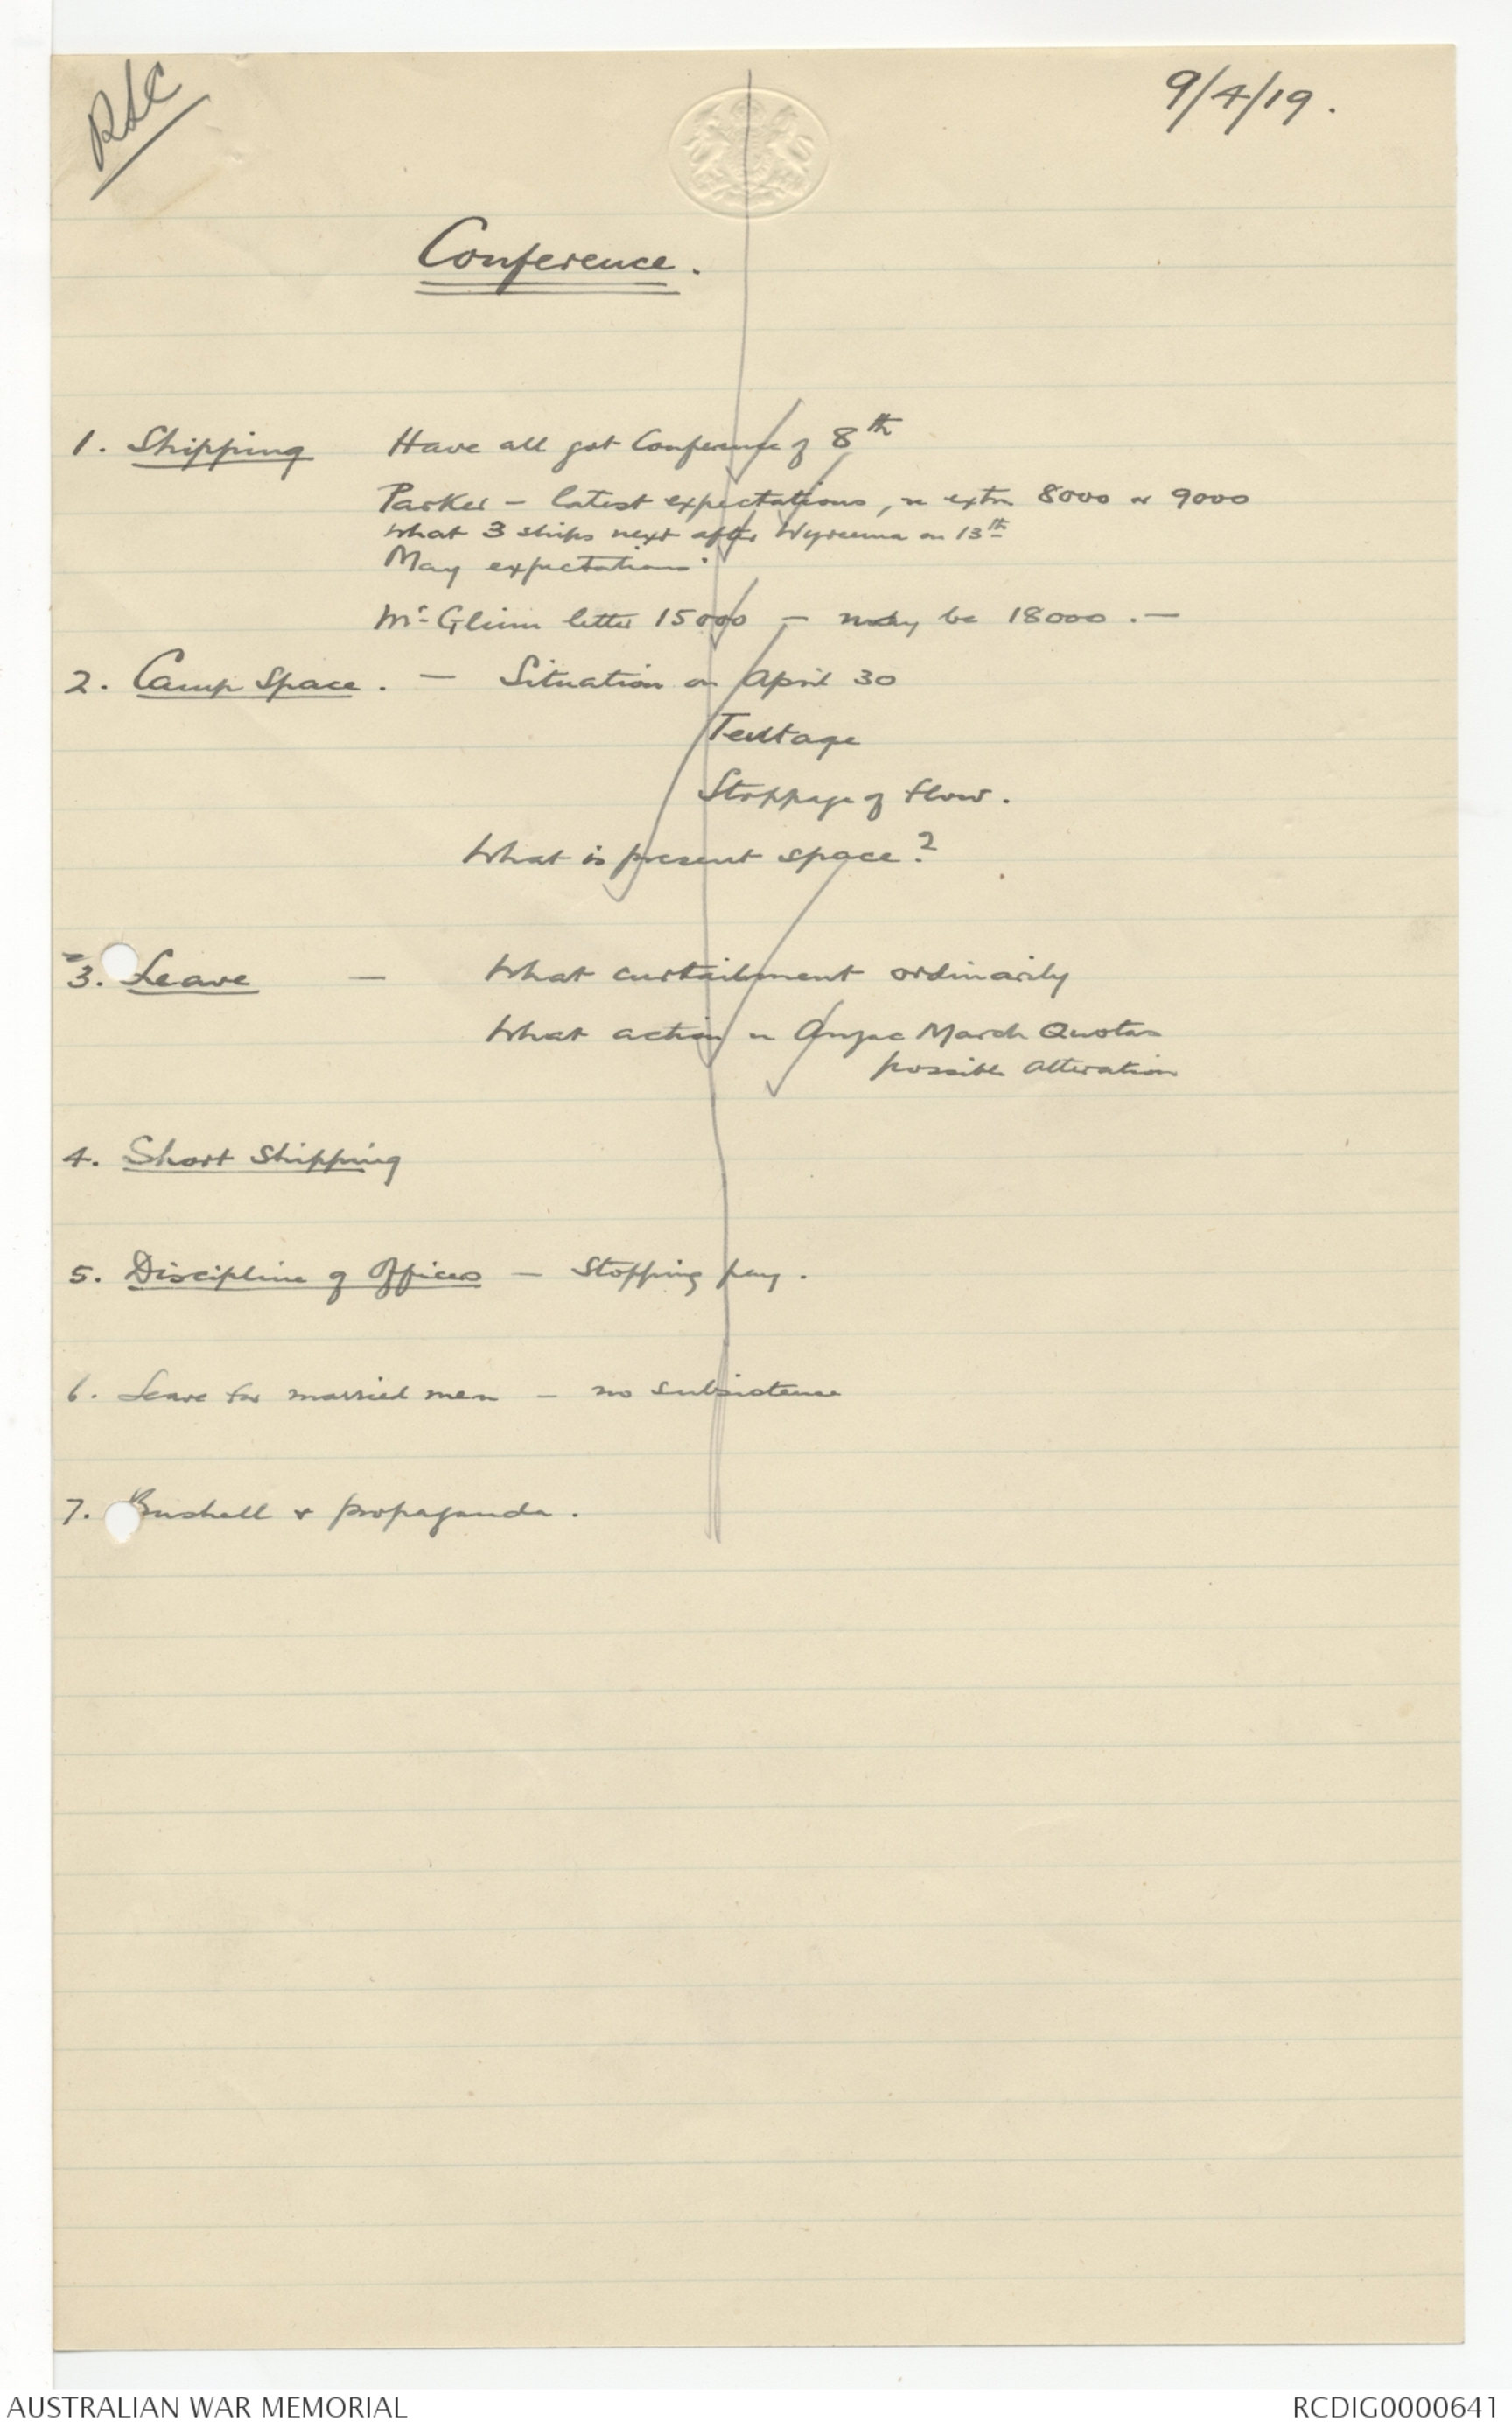 9/4/19.
Conference.
1. Shipping Have all got Conference of 8th
Parker - latest expectations, re extra 8000 or 9000
What 3 ships next after Wyreema on 13th
May expectations.
McGlinn letter 15000 - may be 18000. -
2. Camp Space. - Situation on April 30
Tentage
Stoppage of flow.
What is present space?
3. Leave - What curtailment ordinarily
What action re Anzac March Quotas
possible alteration
4. Short Shipping
5. Discipline of Officers - Stopping pay.
6. Leave for married men - no subsistence
7. Bushell & propaganda.
AUSTRALIAN WAR MEMORIAL RCDIG0000641